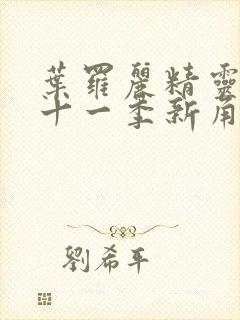 葉羅麗精靈
十一季新角
劉希平